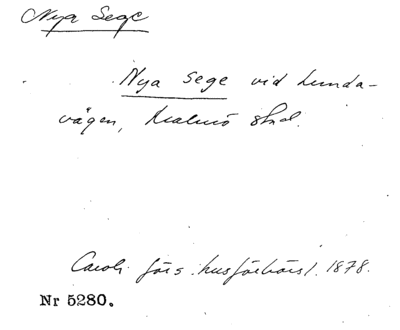 Nya Sege
Nya Sege vid Lunda-
vägen, Malmö stad.
Caroli förs. husförhörsl. 1878.
Nr 5280.